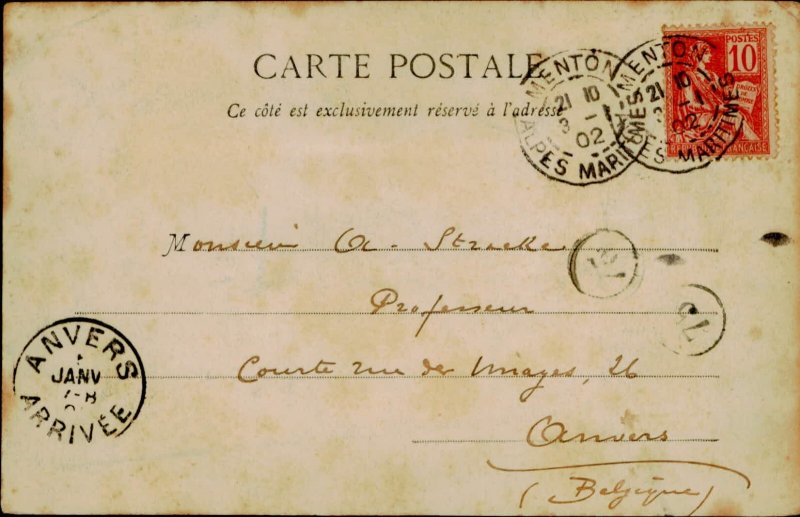 CARTE POSTALE
Ce côté est exclusivement réservé à l'adresse
MENTON
21 10
3 -1
02
ALPES MARITIMES
MENTON
21 10
3 -1
02
ALPES MARITIMES
POSTES
10
DROITS
DE
L'HOMME
REPUBLIQUE FRANÇAISE
Monsieur A. Straelke
Professeur
Courte rue des Images, 26
Anvers
(Belgique)
ANVERS
JANV
ARRIVÉE